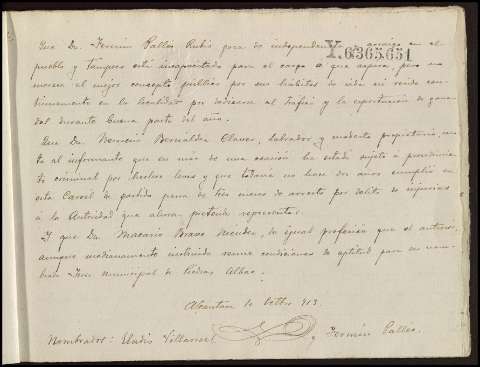 Que Dn. Fermin Palles Rubio goza de independencia y arraigo en el
Y.6365651
pueblo y tampoco está incapacitado para el cargo a que aspira, pero no
merece el mejor concepto público por sus hábitos de vida ni reside con-
tinuamente en la localidad por dedicarse al tráfico y la exportación de gana-
do durante buena parte del año.
Que Dn. Bernalda Claver, labrador y modesto propietario,
ta al informante que en más de una ocasión ha estado sujeto a procedimien-
to criminal por hechos leves y que todavía no hace dos años cumplió en
esta Carcel de partido pena de tres meses de arresto por delito de injurias
á la Autoridad que ahora pretende representar.
Y que Dn. Macario Bravo Méndez, de igual profesión que el anterior,
aunque medianamente instruido reune condiciones de aptitud para ser nom-
brado Juez municipal de Piedras Albas.
Alcántara 10 Octbre 913
Nombrados: Eladio Villarroel y Fermín Palles.